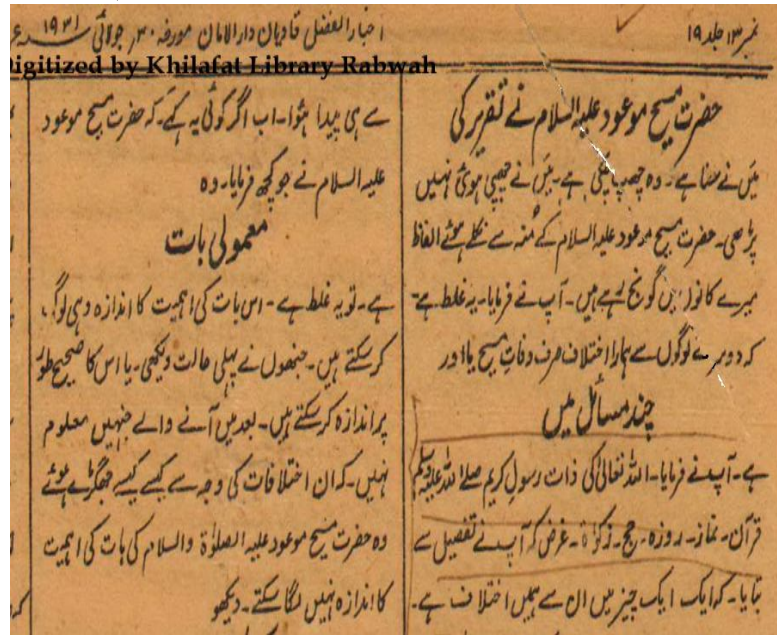 نمبر ۱۳ جلد ۱۹
اخبار الفضل قادیان دارالامان مورخہ ۳۰ جولائی ۱۹۳۱ء
Digitized by Khilafat Library Rabwah
حضرت مسیح موعود علیہ السلام نے تقریر کی
میں نے سنا ہے۔ وہ چھپ گئی ہے۔ میں نے چھپی ہوئی نہیں
پڑھی۔ حضرت مسیح موعود علیہ السلام کے منہ سے نکلے ہوئے الفاظ
میرے کانوں میں گونج رہے ہیں۔ آپ نے فرمایا۔ یہ غلط ہے۔
کہ دوسرے لوگوں سے ہمارا اختلاف صرف وفات مسیح یا اور
چند مسائل میں
ہے۔ آپ نے فرمایا۔ اللہ تعالیٰ کی ذات رسول کریم صلے اللہ علیہ وسلم
قرآن۔ نماز۔ روزہ۔ حج۔ زکوٰۃ۔ غرض کہ آپ نے تفصیل سے
بتایا۔ کہ ایک ایک چیز میں ان سے ہمیں اختلاف ہے۔
سے ہی پیدا ہؤا۔ اب اگر کوئی یہ کہے۔ کہ حضرت مسیح موعود
علیہ السلام نے جو کچھ فرمایا۔ وہ
معمولی بات
ہے۔ تو یہ غلط ہے۔ اس بات کی اہمیت کا اندازہ وہی لوگ
کر سکتے ہیں۔ جنھوں نے پہلی حالت دیکھی۔ یا اس کا صحیح طور
پر اندازہ کر سکتے ہیں۔ بعد میں آنے والے جنہیں معلوم
نہیں۔ کہ ان اختلافات کی وجہ سے کیسے کیسے جھگڑے ہوئے
وہ حضرت مسیح موعود علیہ الصلوٰۃ والسلام کی بات کی اہمیت
کا اندازہ نہیں لگا سکتے۔ دیکھو